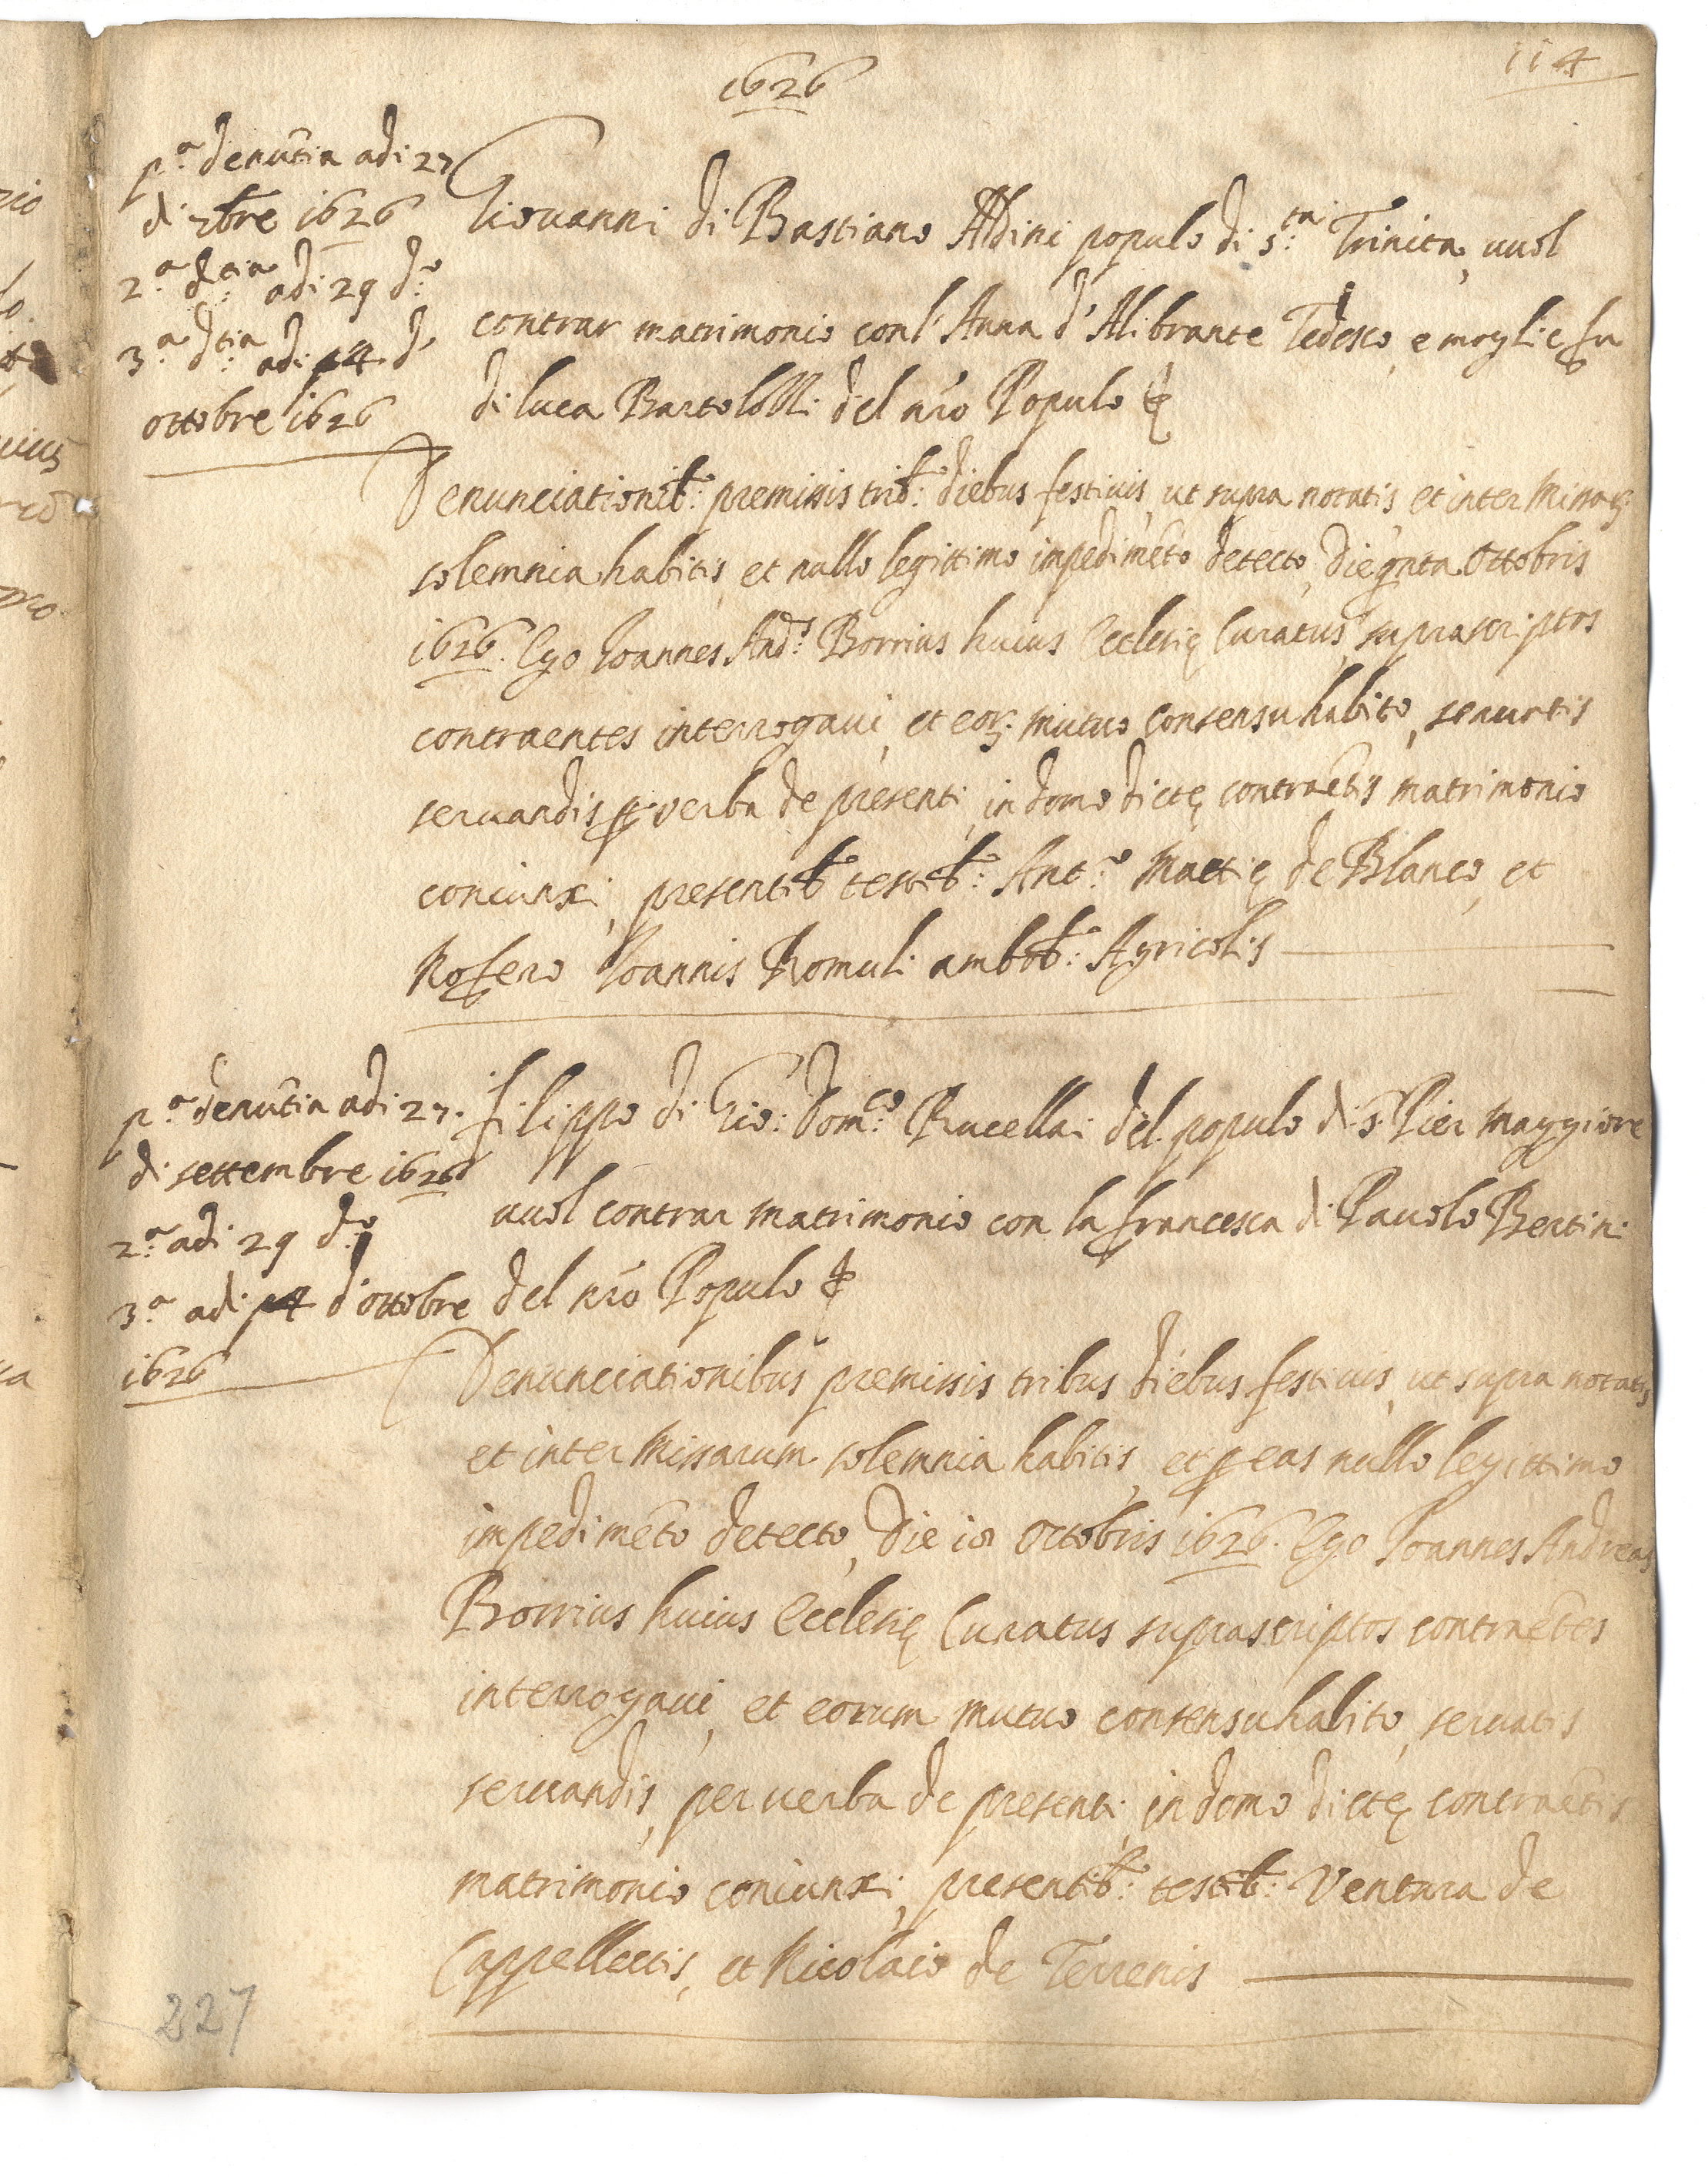 114
1626
p.ª denũtia adi 27
di 7bre 1626
2.ª d.tia adi 29 d.º
3.ª d.tia adi 4 d'
ottobre 1626
Giovanni di Bastiano Aldini populo di s.ta Trinita, vuol
contrar matrimonio con l'Anna d'Alibrante Tedesco, e moglie fu
di luca Bartololli del nr̃o Populo &
Denunciationib.: premissis trib.: diebus festivis, ut supra notatis et inter Missar
solemnia habitis, et nullo legittimo impedimẽto detecto, Die Ottobris
1626. Ego Joannes And.s Borrius huius Ecclesię Curatus suprascriptos
contraentes interrogavi, et eor. mutuo consensu habito, servatis
servandis, ꝑ verba de presenti, in domo dictę contraẽtis matrimonio
coniunxi, presentib. testib.: Ant.º Mattię de Blanco, et
Rofero Joannis Romuli ambob.: Agricolis
p.ª denũtia adi 27.
di settembre 1626
2.ª adi 29 d.º
3.ª adi 4 d'ottobre
1626
filippo di Gio: Dom.co Rucellai del populo di S. Pier Maggiore
vuol contrar matrimonio con la francesca di Pavolo Bertini
del nr̃o Populo &
Denunciationibus premissis tribus diebus festivis, ut supra notatis
et inter Missarum solemnia habitis, et ꝑ eas nullo legittimo
impedimẽto detecto, Die 18 Octobris 1626. Ego Joannes Andreas
Borrius huius Ecclesię Curatus suprascriptos contraẽtes
interrogavi, et eorum mutuo consensu habito, servatis
servandis, per verba de presenti, in domo dictę contraẽtis
matrimonio coniunxi, presentib.: testib.: Ventura de
Cappellettis, et Nicolaio de Terrenis
227